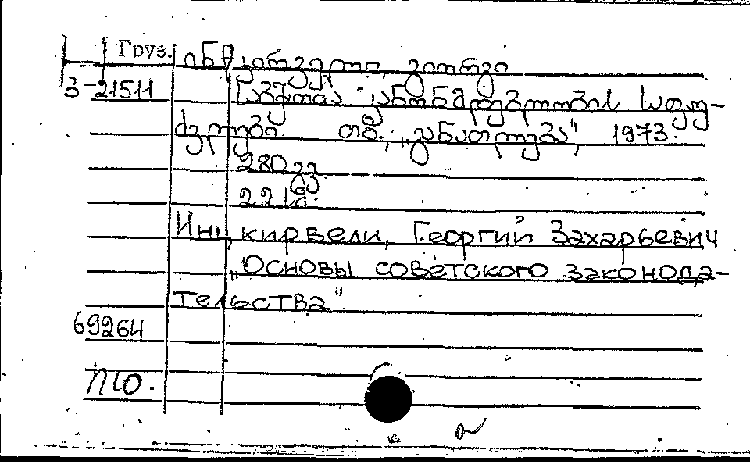 Груз. ინწკირველი, გიორგი
3-21511 საბჭოთა კანონმდებლობის საფუ-
ძვლები. თბ., „განათლება", 1973.
280 გვ.
22 სმ.
Инцкирвели, Георгий Захарьевич
„Основы советского законода-
тельства"
69264